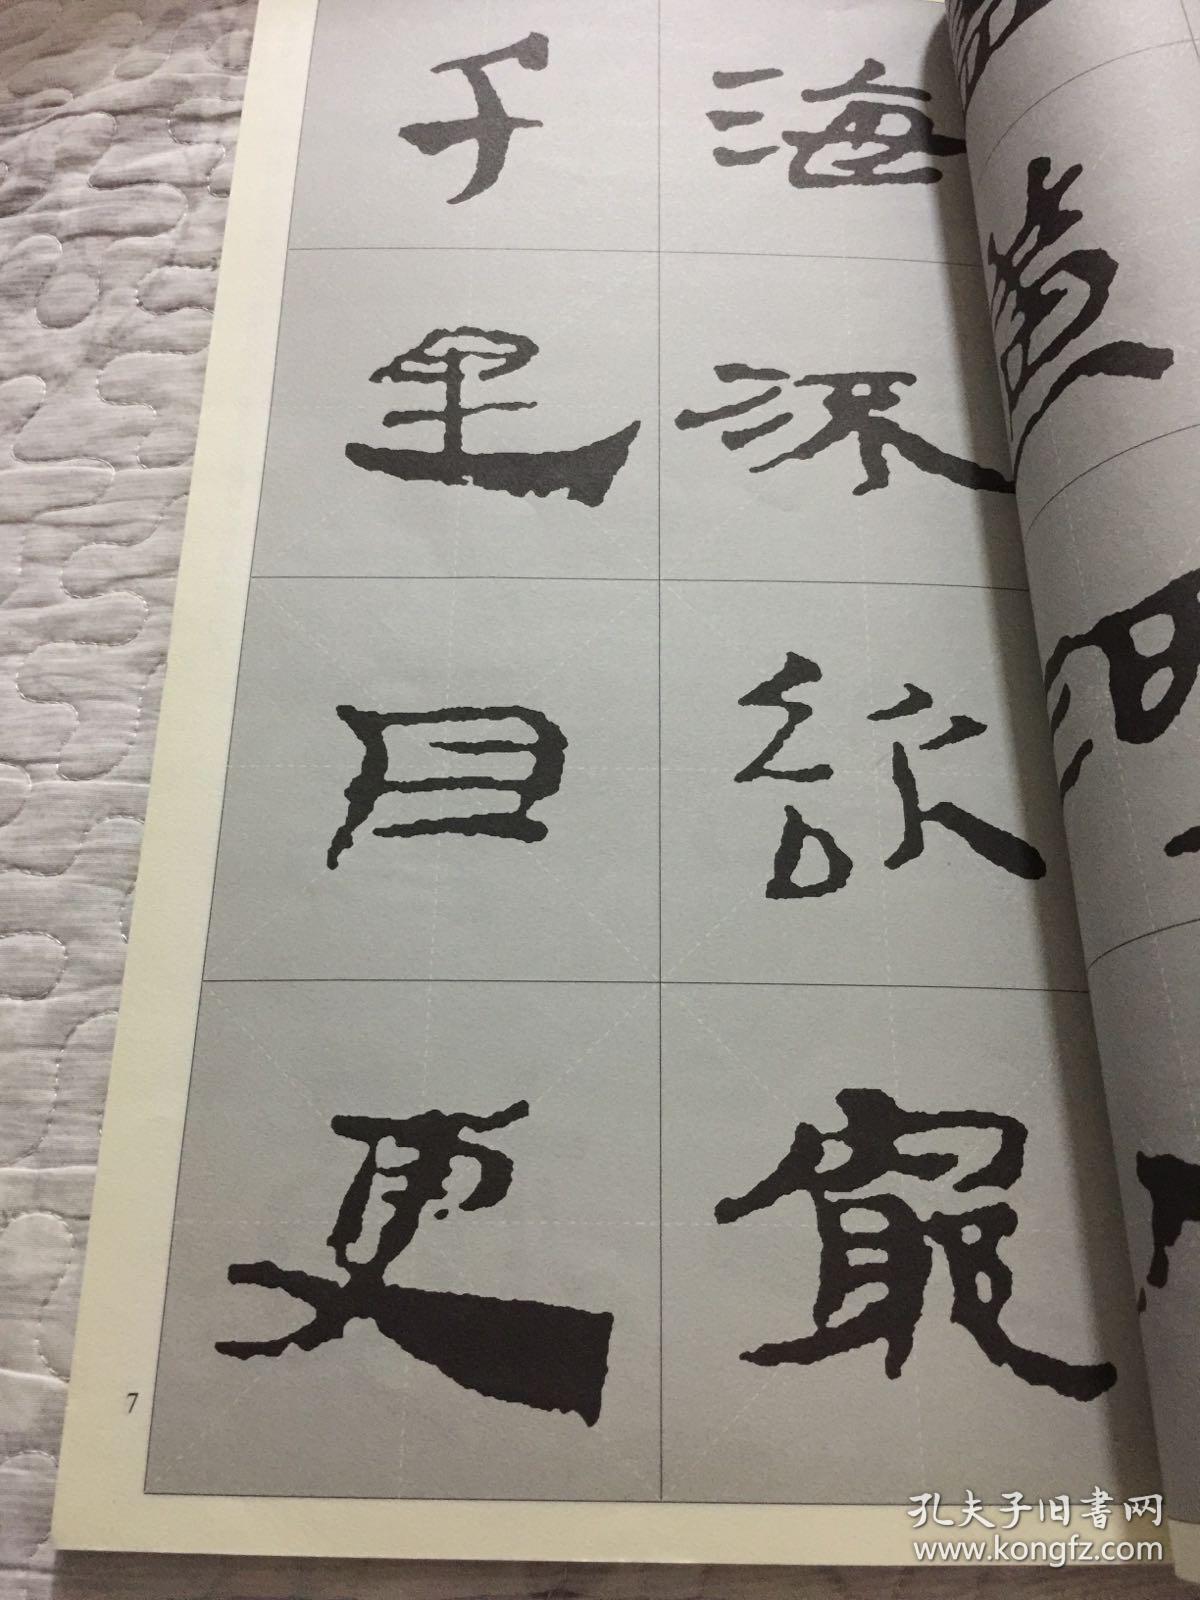 海流欲窮
千里目更
7
孔夫子旧書网
www.kongfz.com